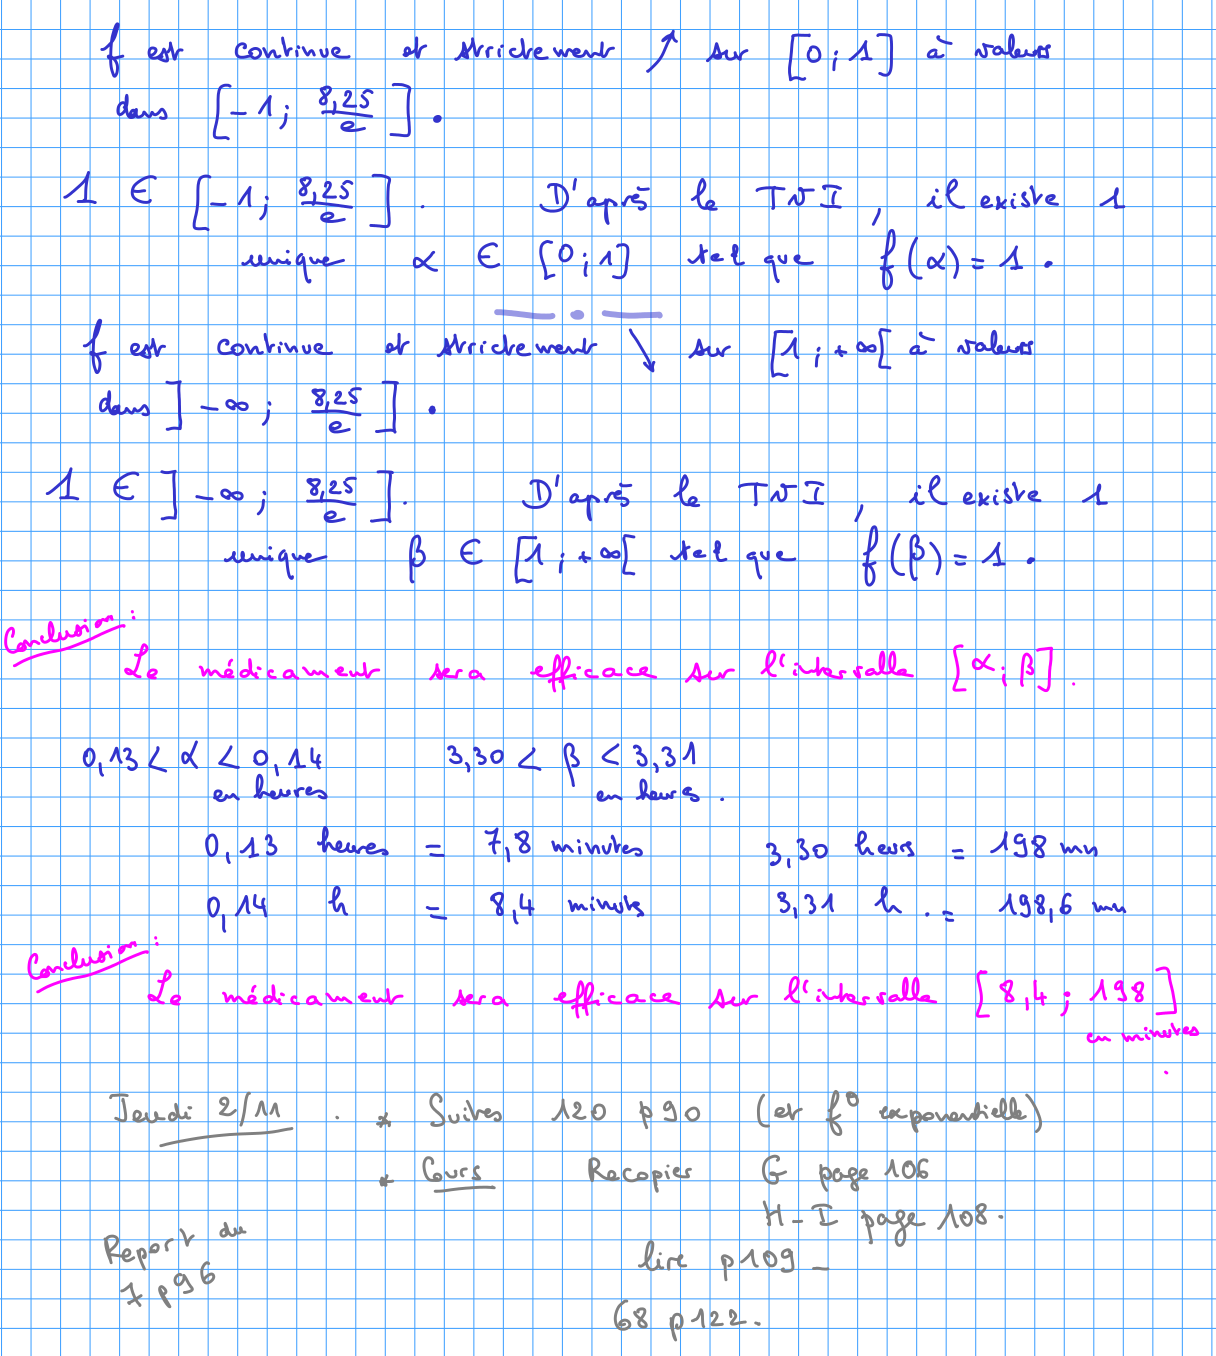 f est continue et strictement ↗ sur [0 ; 1] à valeurs
dans [-1 ; 8,25/e] .
1 ∈ [-1 ; 8,25/e] . D'après le TVI, il existe 1
unique α ∈ [0 ; 1] tel que f(α) = 1 .
f est continue et strictement ↘ sur [1 ; +∞[ à valeurs
dans ]-∞ ; 8,25/e] .
1 ∈ ]-∞ ; 8,25/e] . D'après le TVI, il existe 1
unique β ∈ [1 ; +∞[ tel que f(β) = 1 .
Conclusion :
Le médicament sera efficace sur l'intervalle [α ; β] .
0,13 < α < 0,14 3,30 < β < 3,31
en heures en heures .
0,13 heures = 7,8 minutes 3,30 heurs = 198 mn
0,14 h = 8,4 minutes 3,31 h . = 198,6 mn
Conclusion :
Le médicament sera efficace sur l'intervalle [8,4 ; 198]
en minutes .
Jeudi 2/11 . * Suites 120 p 90 (et f° exponentielle)
* Cours Recopier G page 106
H - I page 108 .
Report du
7 p 96
lire p 109 _
68 p 122 .